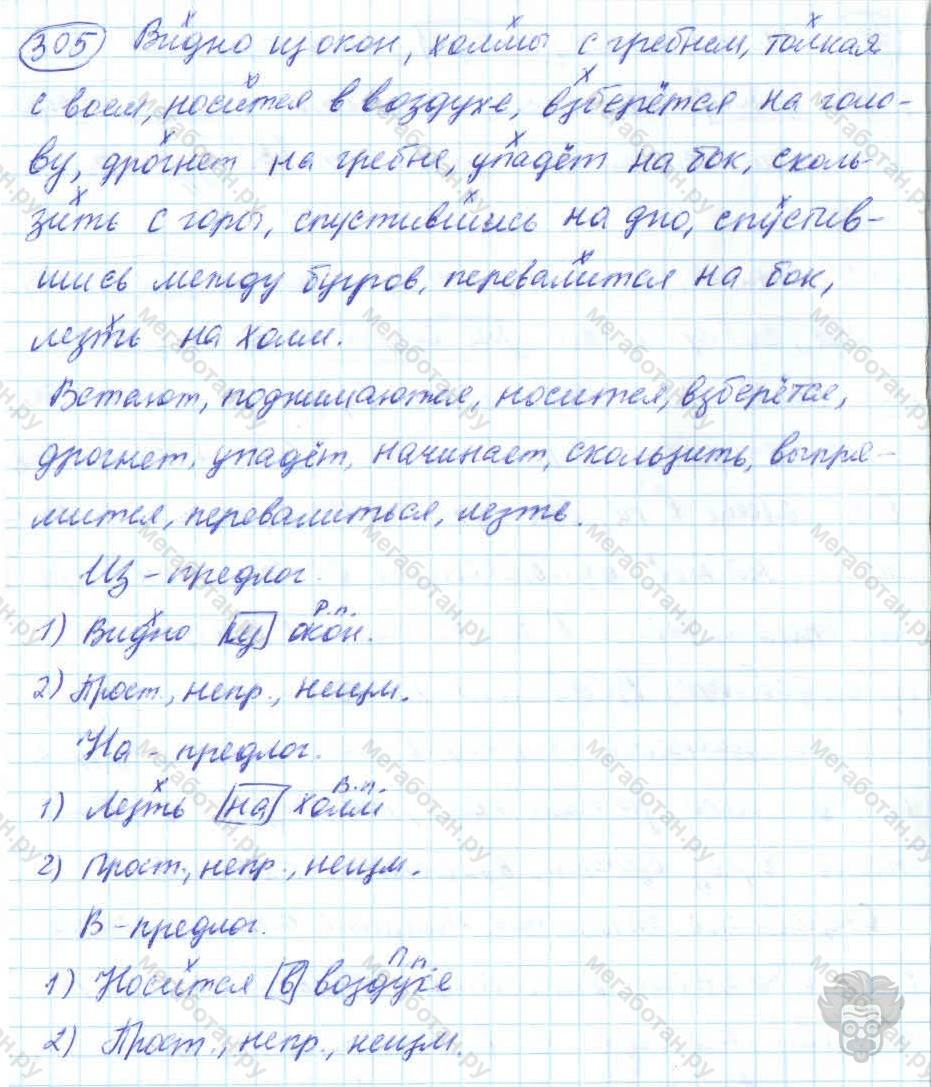 305 Видно из окон, холмы с гребнем, толкая
с воем, носится в воздухе, взберётся на голо-
ву, дрогнет на гребне, упадёт на бок, сколь-
зить с горы, спустившись на дно, спустив-
шись между бугров, перевалится на бок,
лезть на холм.
Встают, поднимаются, носится, взберётся,
дрогнет, упадёт, начинает, скользить, выпря-
мится, перевалиться, лезть.
Из - предлог.
1) Видно из окон. Р.п.
2) Прост., непр., неизм.
На - предлог.
1) Лезть на холм В.п.
2) Прост., непр., неизм.
В - предлог.
1) Носится в воздухе П.п.
2) Прост., непр., неизм.
Мегаботан.ру